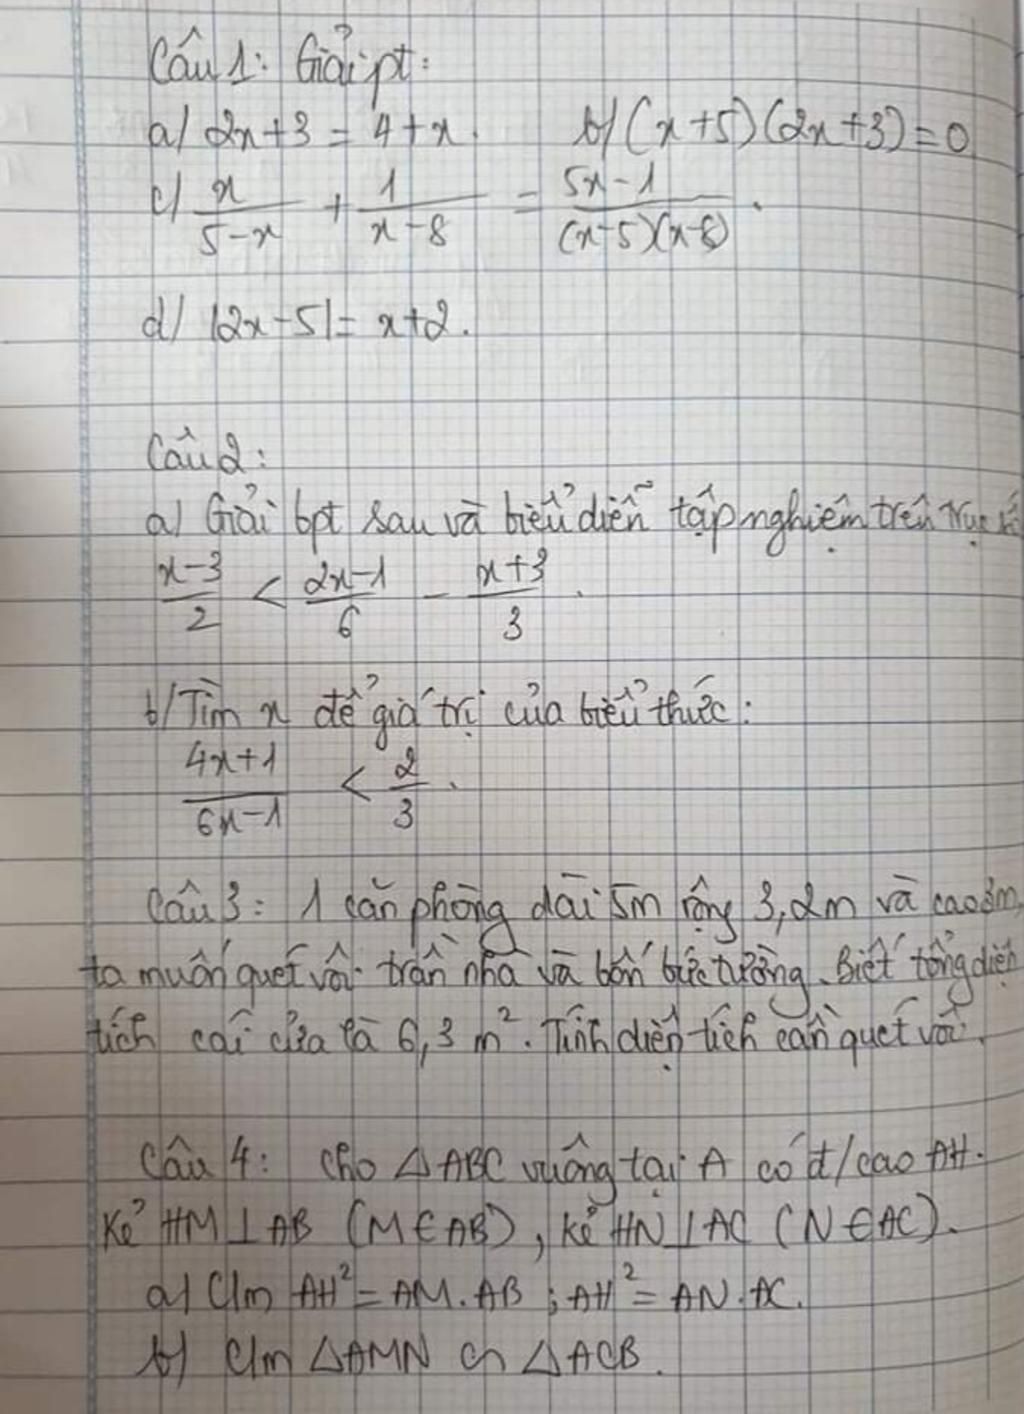 Câu 1: Giải pt:
a/ 2x+3 = 4+x. b/ (x+5)(2x+3)=0
c/ x/(5-x) + 1/(x-8) = (5x-1)/((x-5)(x-8)).
d/ |2x-5|= x+2.
Câu 2:
a/ Giải bpt sau và biểu diễn tập nghiệm trên trục
(x-3)/2 < (2x-1)/6 - (x+3)/3.
b/ Tìm x để giá trị của biểu thức:
(4x+1)/(6x-1) < 2/3.
Câu 3: 1 căn phòng dài 5m rộng 3,2m và cao 3m,
ta muốn quét vôi trần nhà và bốn bức tường. Biết tổng diện
tích cái cửa là 6,3 m². Tính diện tích cần quét vôi.
Câu 4: Cho △ABC vuông tại A có đ/cao AH.
Kẻ HM⊥AB (M∈AB), kẻ HN⊥AC (N∈AC).
a/ C/m AH² = AM.AB ; AH² = AN.AC.
b/ C/m △AMN ∽ △ACB.